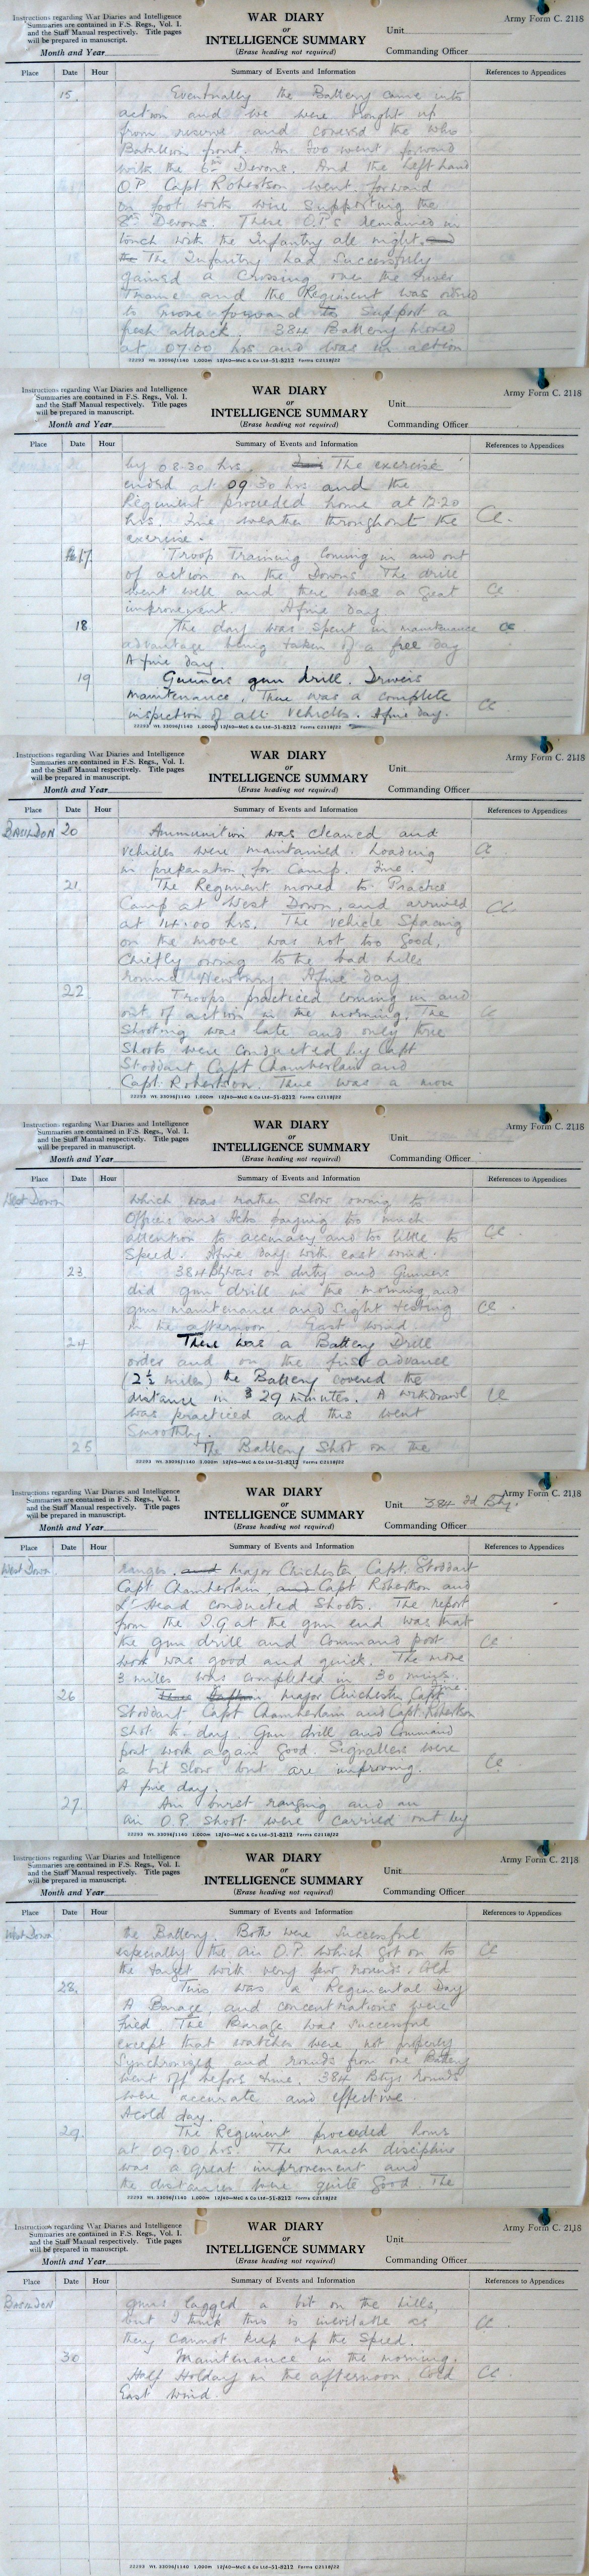 Instructions regarding War Diaries and Intelligence
Summaries are contained in F.S. Regs., Vol. I.
and the Staff Manual respectively. Title pages
will be prepared in manuscript.
Month and Year
WAR DIARY
or
INTELLIGENCE SUMMARY
(Erase heading not required)
Army Form C. 2118
Unit
Commanding Officer
Place Date Hour Summary of Events and Information References to Appendices
15. Eventually the Battery came into
action and we were brought up
from reserve and covered the who
Batallion front. In went forward
with the 6th Devons. And the left hand
O.P. Capt Robertson went forward
on foot with wire supporting the
8th Devons. These O.P.s remained in
touch with the Infantry all night.
The Infantry had successfully
gained a crossing over the river
Thame and the Regiment was ordered
to move forward to support a
fresh attack. 384 Battery moved
at 07.00 hrs and was in action
22293 Wt. 33096/1140 1,000m 12/40—McC & Co Ltd—51-8212 Forms C2118/22
Instructions regarding War Diaries and Intelligence
Summaries are contained in F.S. Regs., Vol. I.
and the Staff Manual respectively. Title pages
will be prepared in manuscript.
Month and Year
WAR DIARY
or
INTELLIGENCE SUMMARY
(Erase heading not required)
Army Form C. 2118
Unit
Commanding Officer
Place Date Hour Summary of Events and Information References to Appendices
by 08.30 hrs. The exercise
ended at 09 30 hrs and the
Regiment proceeded home at 12.20
hrs. Fine weather throughout the Cc.
exercise.
17 Troop Training coming in and out
of action on the Downs. The drill
went well and there was a great Cc
improvement. A fine day.
18 The day was spent in maintenance Cc
advantage being taken of a free day
A fine day.
19 Gunners gun drill. Drivers
maintenance. There was a complete
inspection of all vehicles. A fine day. Cc
22293 Wt. 33096/1140 1,000m 12/40—McC & Co Ltd—51-8212 Forms C2118/22
Instructions regarding War Diaries and Intelligence
Summaries are contained in F.S. Regs., Vol. I.
and the Staff Manual respectively. Title pages
will be prepared in manuscript.
Month and Year
WAR DIARY
or
INTELLIGENCE SUMMARY
(Erase heading not required)
Army Form C. 2118
Unit
Commanding Officer
Place Date Hour Summary of Events and Information References to Appendices
20 Ammunition was cleaned and
vehicles were maintained. Loading Cc
in preparation for Camp. Fine.
21. The Regiment moved to Practice
Camp at West Down, and arrived Cc
at 14.00 hrs. The vehicle Spacing
on the move was not too good,
Chiefly owing to the bad hills
round Newbury. A fine day.
22 Troops practiced coming in and
out of action in the morning. The Cc
Shooting was late and only three
Shoots were conducted by Capt
Stoddart, Capt Chamberlain and
Capt. Robertson. There was a move
22293 Wt. 33096/1140 1,000m 12/40—McC & Co Ltd—51-8212 Forms C2118/22
Instructions regarding War Diaries and Intelligence
Summaries are contained in F.S. Regs., Vol. I.
and the Staff Manual respectively. Title pages
will be prepared in manuscript.
Month and Year
WAR DIARY
or
INTELLIGENCE SUMMARY
(Erase heading not required)
Army Form C. 2118
Unit
Commanding Officer
Place Date Hour Summary of Events and Information References to Appendices
West Down which was rather slow owing to
Officers and Acks paying too much
attention to accuracy and too little to Cc
Speed. A fine day with east wind.
23. 384 Bty was on duty and Gunners
did gun drill in the morning and
gun maintenance and Sight testing Cc
in the afternoon. East wind
24 There was a Battery Drill
order and on the first advance
(2½ miles) the Battery covered the
distance in 29 minutes. A withdrawl Cc
was practiced and this went
Smoothly.
25 The Battery Shot on the
22293 Wt. 33096/1140 1,000m 12/40—McC & Co Ltd—51-8212 Forms C2118/22
Instructions regarding War Diaries and Intelligence
Summaries are contained in F.S. Regs., Vol. I.
and the Staff Manual respectively. Title pages
will be prepared in manuscript.
Month and Year
WAR DIARY
or
INTELLIGENCE SUMMARY
(Erase heading not required)
Army Form C. 2118
Unit 384 Fd Bty.
Commanding Officer
Place Date Hour Summary of Events and Information References to Appendices
West Down ranges. and Major Chichester Capt. Stoddart
Capt Chamberlain, and Capt Robertson and
Lt Head conducted Shoots. The report
from the I.G at the gun end was that
the gun drill and Command post Cc
work was good and quick. The move
3 miles was completed in 30 minuts.
Fine.
26 Major Chichester, Capt
Stoddart, Capt Chamberlain and Capt. Robertson
Shot to-day. Gun drill and Command
post work again good. Signallers were
a bit slow but are improving. Cc
A fine day.
27. Air burst ranging and an
air O.P. shoot were carried out by
22293 Wt. 33096/1140 1,000m 12/40—McC & Co Ltd—51-8212 Forms C2118/22
Instructions regarding War Diaries and Intelligence
Summaries are contained in F.S. Regs., Vol. I.
and the Staff Manual respectively. Title pages
will be prepared in manuscript.
Month and Year
WAR DIARY
or
INTELLIGENCE SUMMARY
(Erase heading not required)
Army Form C. 2118
Unit
Commanding Officer
Place Date Hour Summary of Events and Information References to Appendices
West Down the Battery. Both were Successful
especially the air O.P. which got on to Cc
the target with very few rounds. Cold
28. This was a Regimental Day
A Barage, and concentrations were
fired. The Barage was successful
except that watches were not properly
Synchronised and rounds from one Battery
went off before time. 384 Btys rounds
were accurate and effective.
A cold day.
29. The Regiment proceeded home
at 09.00 hrs. The march discipline
was a great improvement and
the distances were quite good. The
22293 Wt. 33096/1140 1,000m 12/40—McC & Co Ltd—51-8212 Forms C2118/22
Instructions regarding War Diaries and Intelligence
Summaries are contained in F.S. Regs., Vol. I.
and the Staff Manual respectively. Title pages
will be prepared in manuscript.
Month and Year
WAR DIARY
or
INTELLIGENCE SUMMARY
(Erase heading not required)
Army Form C. 2118
Unit
Commanding Officer
Place Date Hour Summary of Events and Information References to Appendices
guns lagged a bit on the hills,
but I think this is inevitable as Cc
they cannot keep up the speed.
30 Maintenance in the morning.
Half Holiday in the afternoon. Cold Cc
East wind.
22293 Wt. 33096/1140 1,000m 12/40—McC & Co Ltd—51-8212 Forms C2118/22